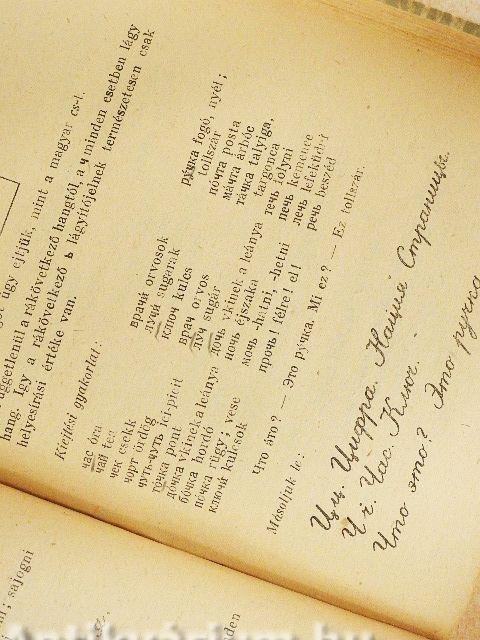 úgy ejtjük, mint a magyar cs-t.
függetlenül a rákövetkező hangtól a ч minden esetben lágy
hang. Igy a rákövetkező ь lágyítójelnek természetesen csak
helyesírási értéke van.
Kiejtési gyakorlat:
час óra
чай tea
чек csekk
чорт ördög
чуть-чуть ici-picit
то́чка pont
до́чка vkinek a leánya
бо́чка hordó
по́чка rügy; vese
ключи́ kulcsok
врачи́ orvosok
лучи́ sugarak
ключ kulcs
врач orvos
луч sugár
дочь vkinek a leánya
ночь éjszaka
мочь -hatni, -hetni
прочь! félre! el!
ру́чка fogó, nyél;
tollszár
по́чта posta
ма́чта árbóc
та́чка talyiga,
targonca
течь folyni
печь kemence
лечь lefeküdni
речь beszéd
Что э́то? — Э́то ру́чка. Mi ez? — Ez tollszár.
Másoljuk le:
Цц. Цифра. Нация. Страницы.
Чч. Час. Ключ.
Что это? Это ручка
; sajogni
Antikvárium.hu